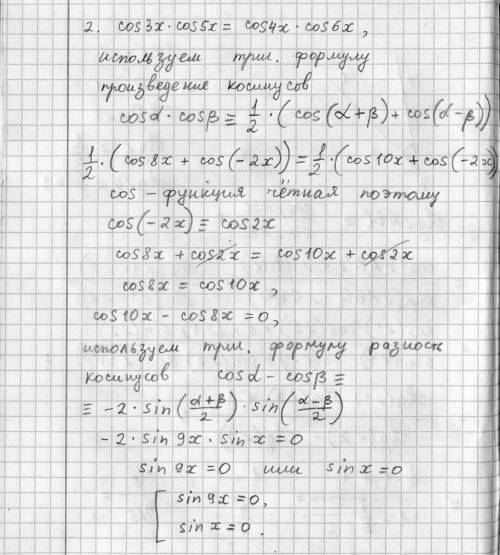 2. cos3x·cos5x = cos4x·cos6x,
используем триг. формулу
произведение косинусов
cosα·cosβ ≡ 1/2·(cos(α+β)+cos(α-β))
1/2·(cos8x + cos(-2x)) = 1/2·(cos10x + cos(-2x))
cos - функция чётная поэтому
cos(-2x) ≡ cos2x
cos8x + cos2x = cos10x + cos2x
cos8x = cos10x,
cos10x - cos8x = 0,
используем триг. формулу разность
косинусов cosα - cosβ ≡
≡ -2·sin((α+β)/2)·sin((α-β)/2)
-2·sin9x·sinx = 0
sin9x = 0 или sinx = 0
[ sin9x = 0,
sinx = 0.